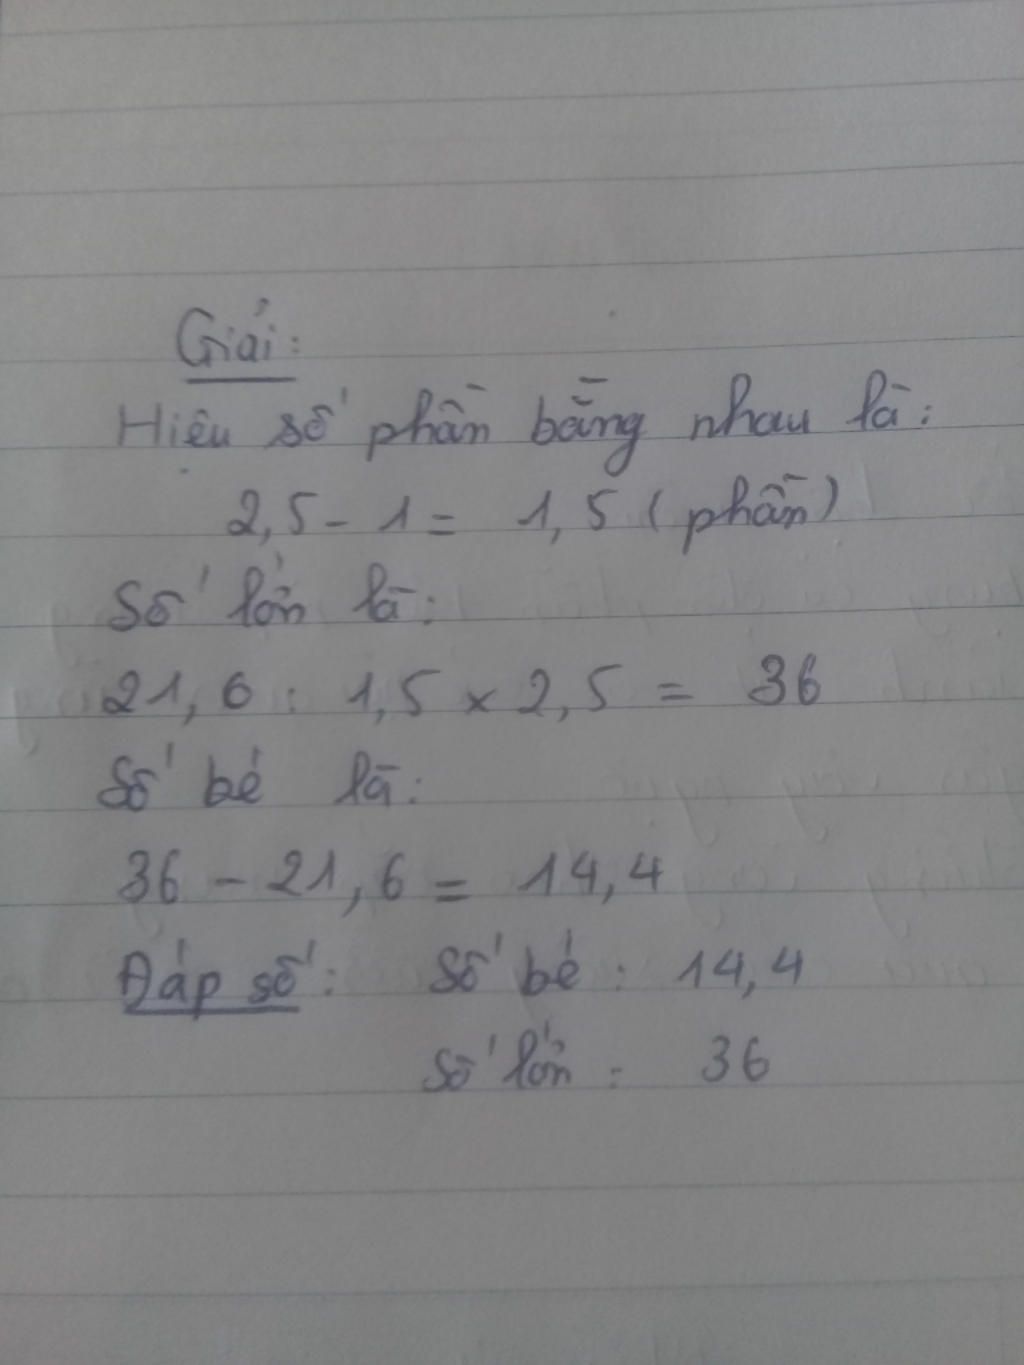 Giải:
Hiệu số phần bằng nhau là:
2,5 - 1 = 1,5 (phần)
Số lớn là:
21,6 : 1,5 × 2,5 = 36
Số bé là:
36 - 21,6 = 14,4
Đáp số: Số bé : 14,4
Số lớn : 36